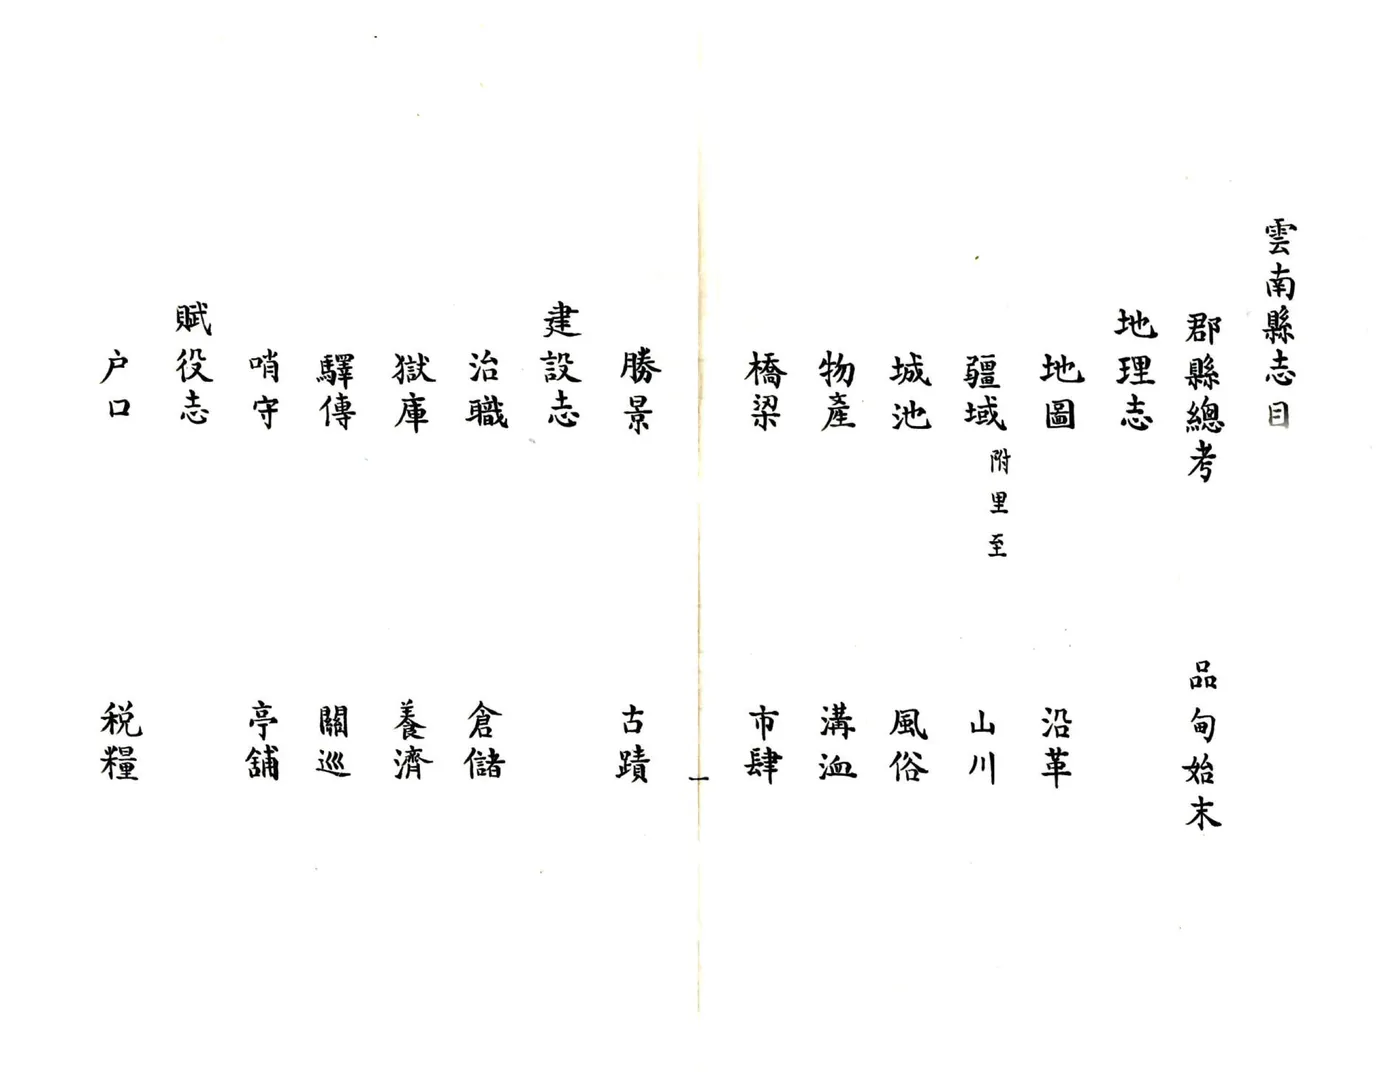 雲南縣志目
郡縣總考 品甸始末
地理志
地圖 沿革
疆域 附里至 山川
城池 風俗
物產 溝洫
橋梁 市肆
一
勝景 古蹟
建設志
治職 倉儲
獄庫 養濟
驛傳 關巡
哨守 亭舖
賦役志
户口 税糧